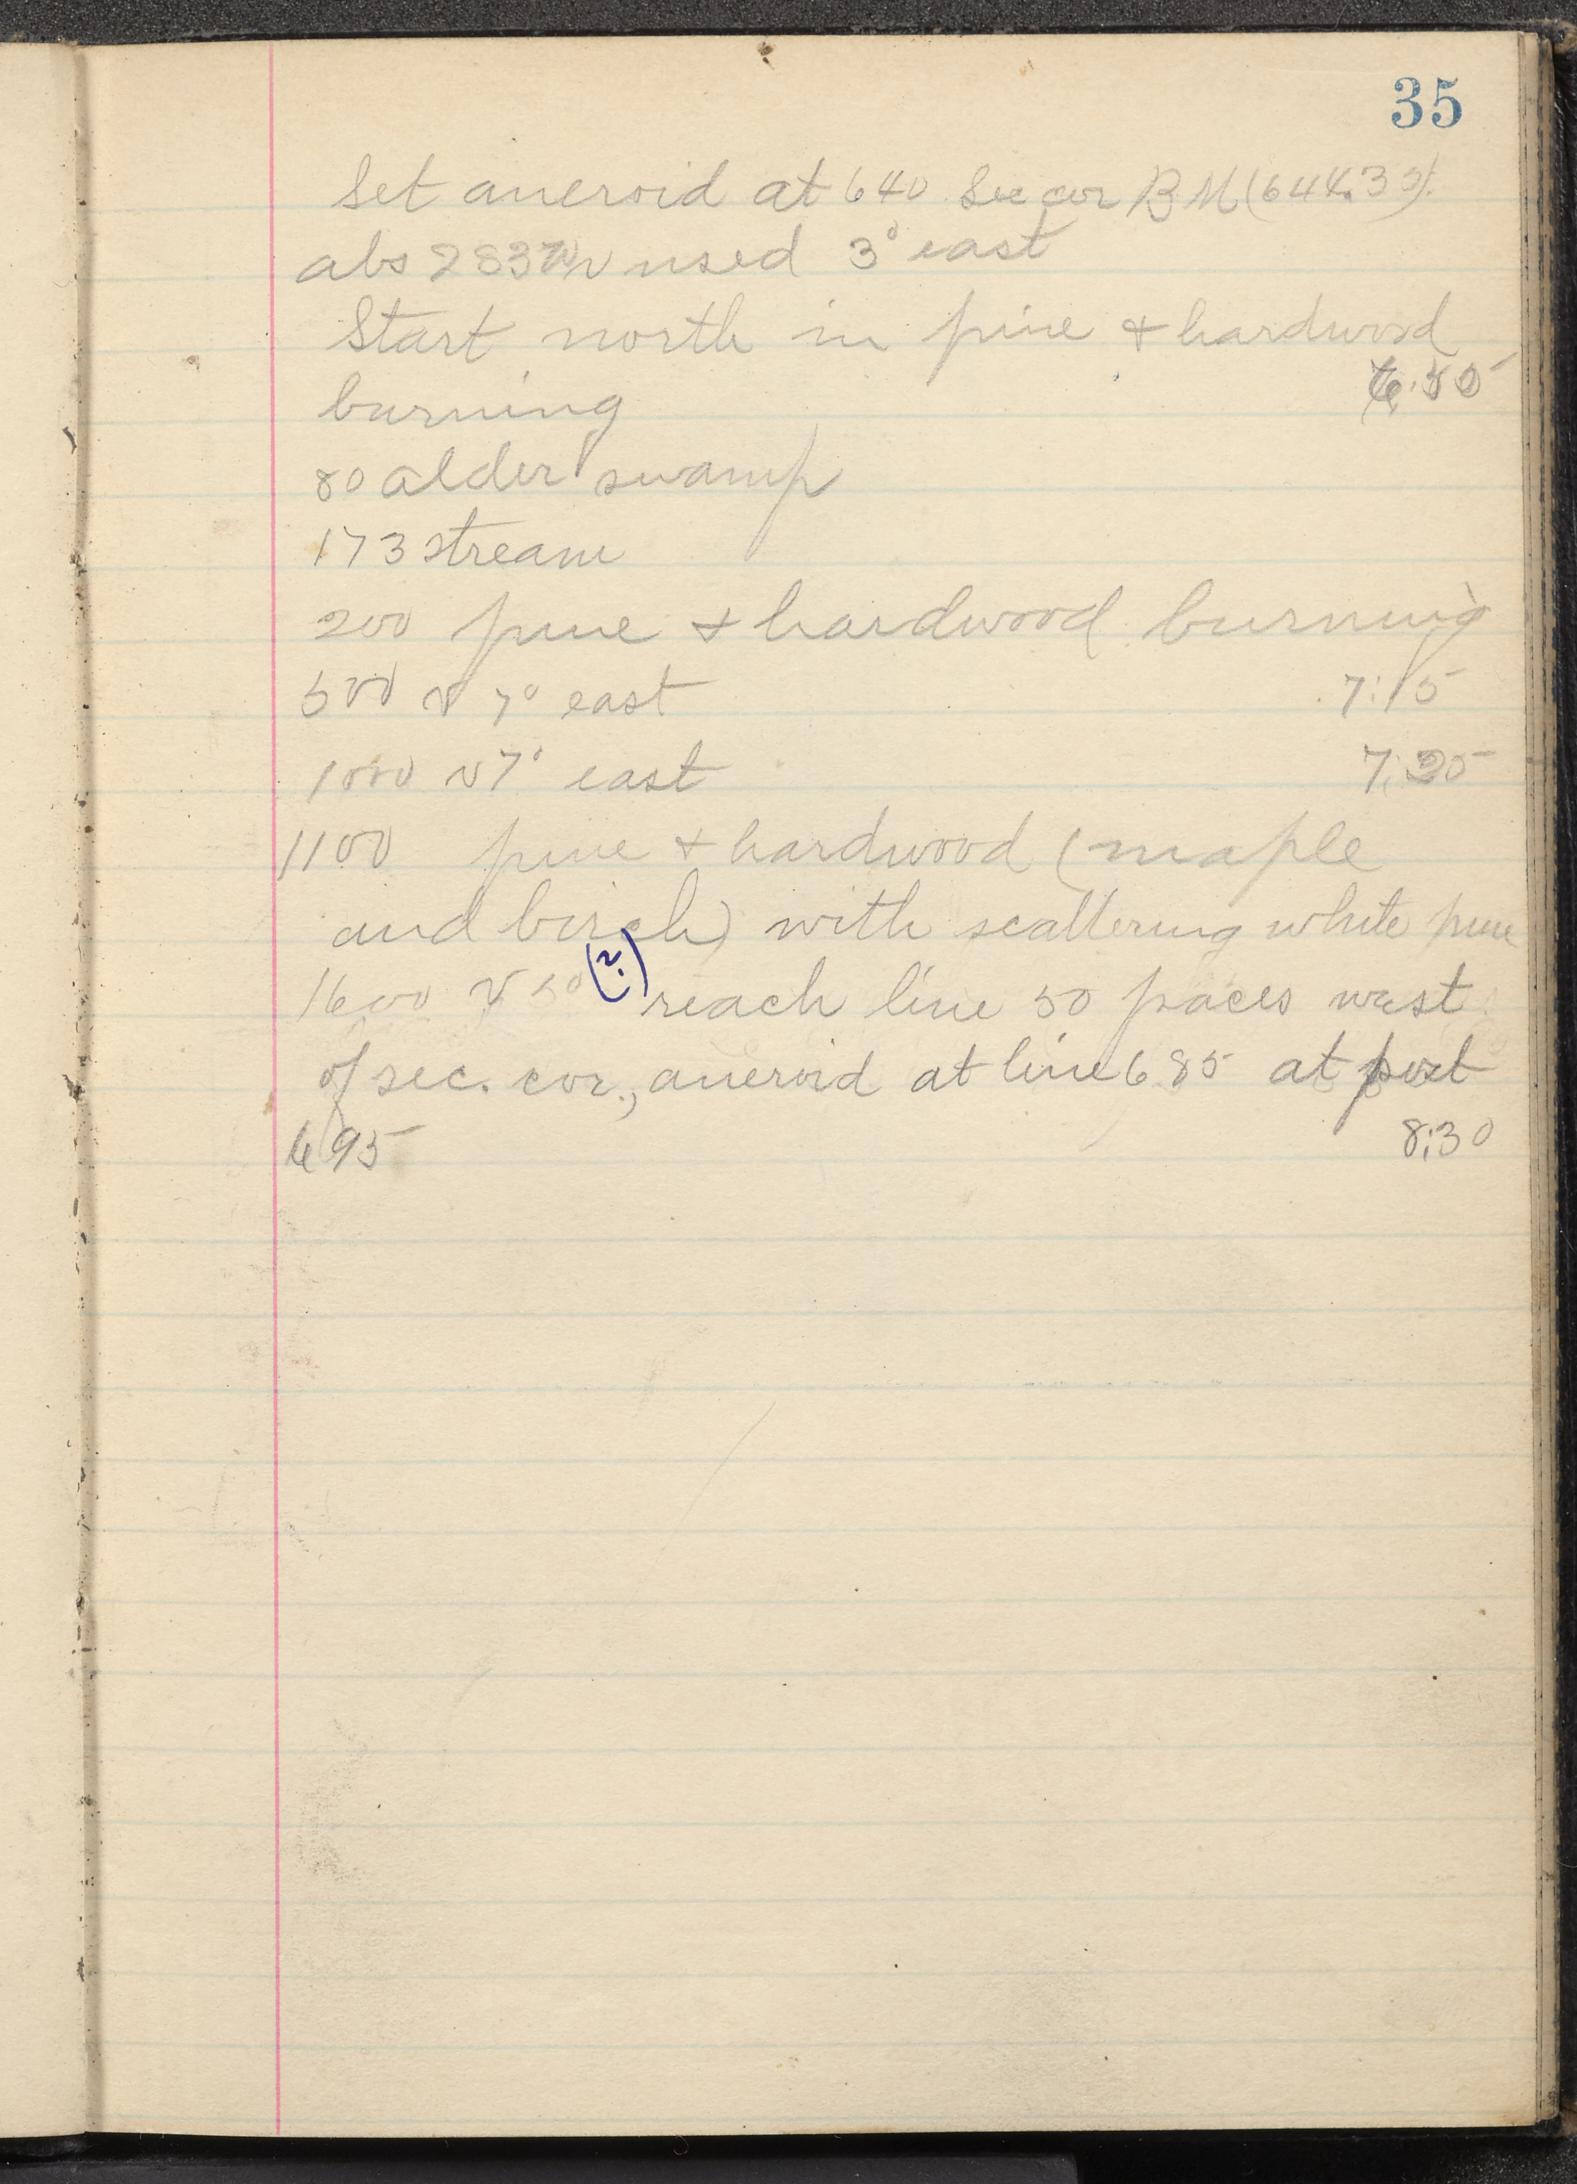 35
Set aneroid at 640 Sec cor B M (644.33).
abs used 3° east
Start north in pine & hardwood
burning 6:50
80 alder swamp
173 stream
200 pine & hardwood burning
500 v 7° east 7:15
1000 v 7° east 7:25
1100 pine & hardwood (maple
and birch) with scattering white pine
1600 v 5° (?) reach line 50 paces west
of sec. cor., aneroid at line 685 at post
695 8:30